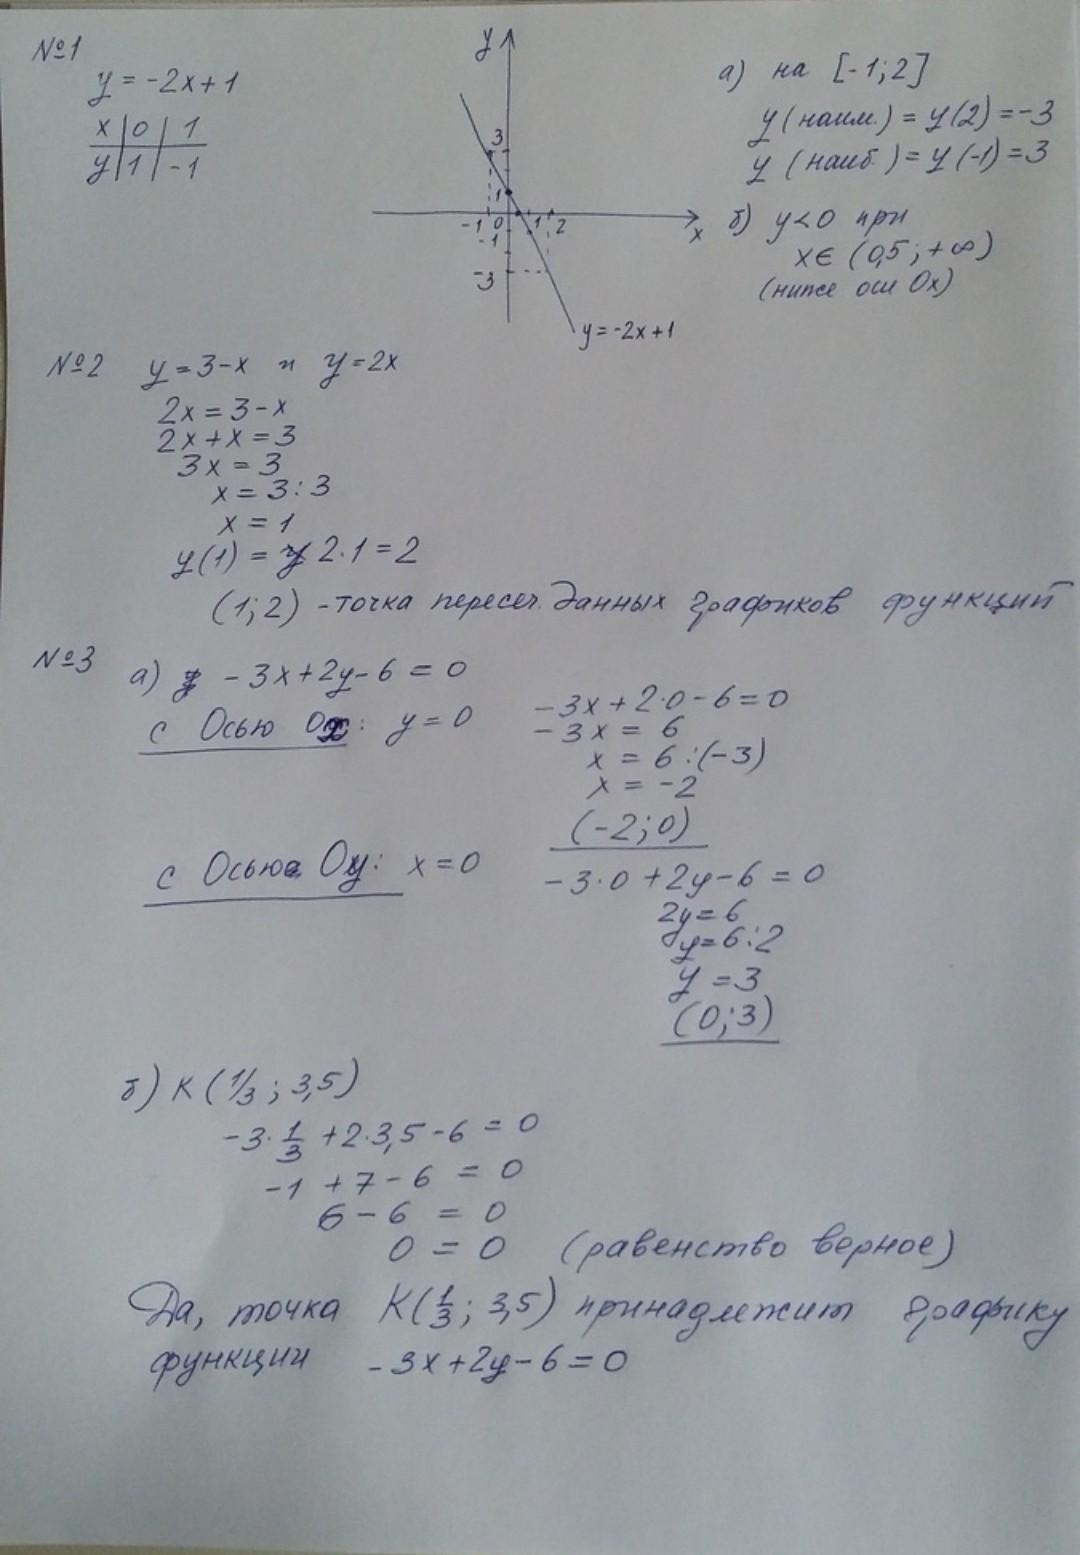 №1
y = -2x+1
x | 0 | 1
y | 1 | -1
y
3
1
-1 0 1 2
x
-1
-3
y = -2x+1
а) на [-1;2]
y(наим.) = y(2) = -3
y (наиб.) = y(-1) = 3
б) y<0 при
x∈ (0,5; +∞)
(ниже оси Ox)
№2 y = 3-x и y = 2x
2x = 3-x
2x+x = 3
3x = 3
x = 3:3
x = 1
y(1) = 2·1 = 2
(1;2) - точка пересеч. данных графиков функций
№3 а) -3x+2y-6 = 0
с Осью Ox: y = 0
-3x+2·0-6=0
-3x = 6
x = 6:(-3)
x = -2
(-2;0)
с Осью Oy: x = 0
-3·0+2y-6 = 0
2y = 6
y = 6:2
y = 3
(0;3)
б) K(1/3; 3,5)
-3·1/3 +2·3,5-6 = 0
-1 +7-6 = 0
6-6 = 0
0 = 0 (равенство верное)
Да, точка K(1/3; 3,5) принадлежит графику
функции -3x+2y-6=0